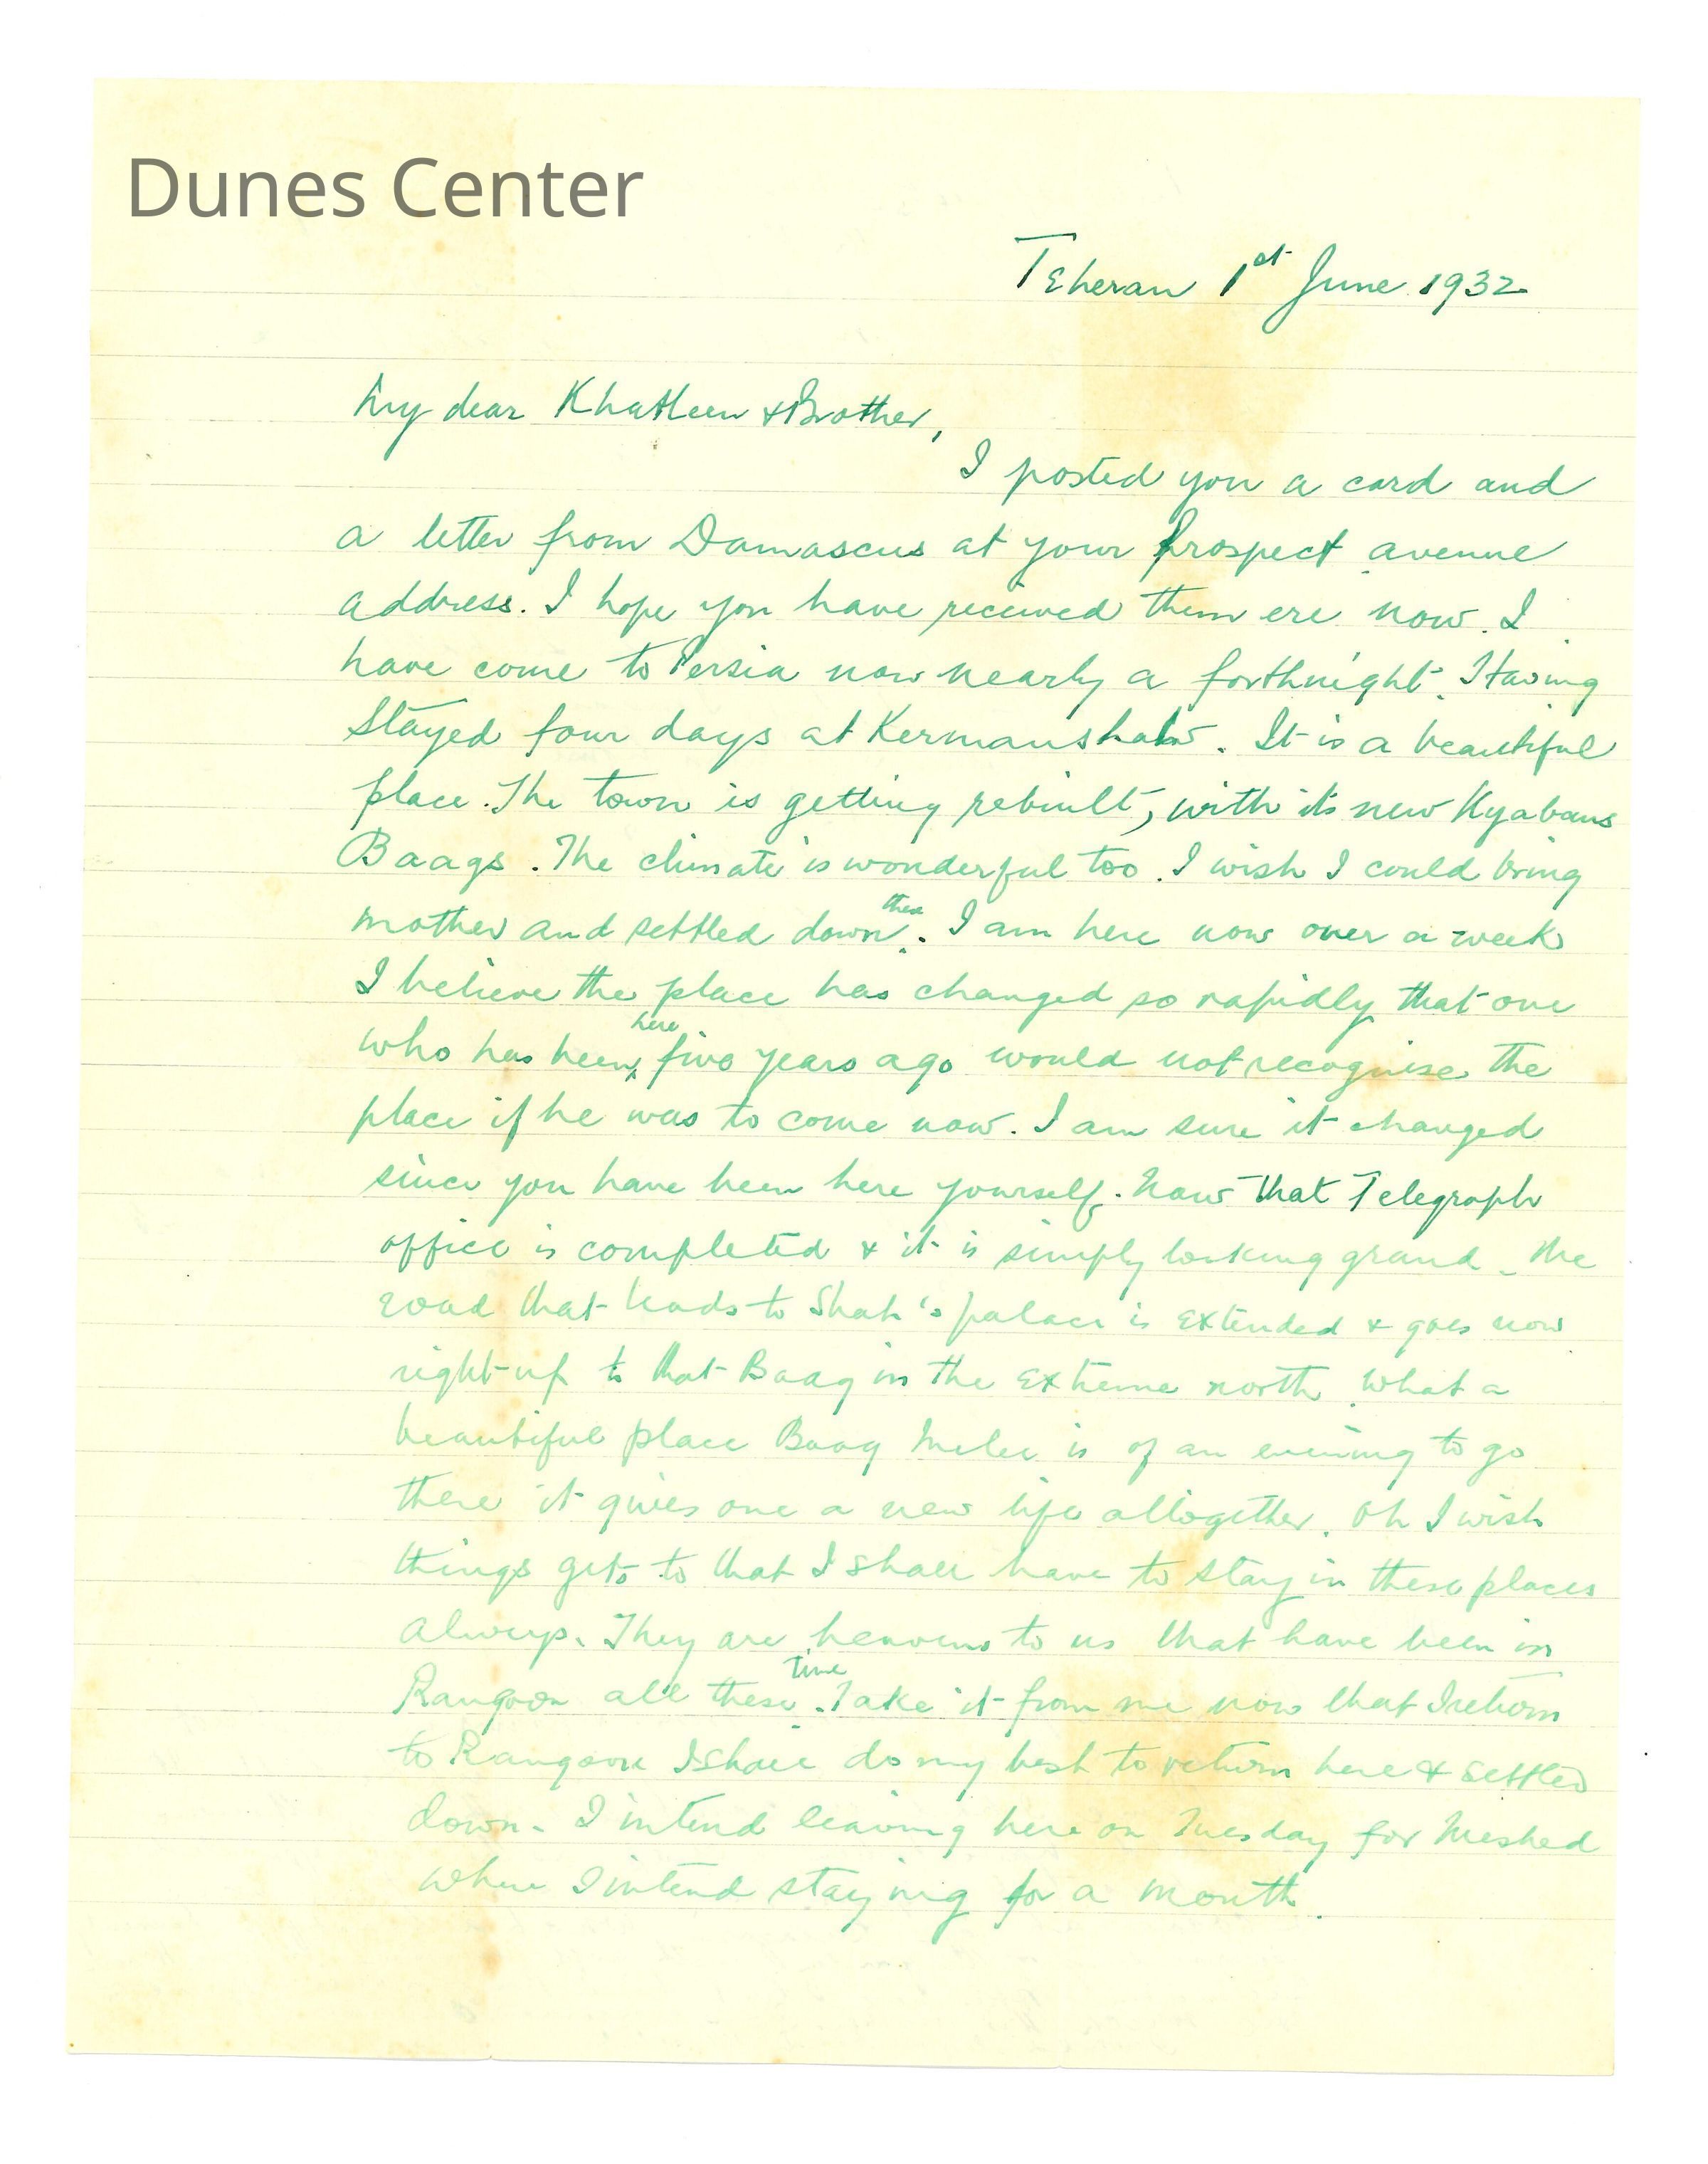 Dunes Center
Teheran 1st June 1932
My dear Khatleen & Brother,
I posted you a card and
a letter from Damascus at your Prospect avenue
address. I hope you have received them ere now. I
have come to Persia now nearly a forthnight. Having
stayed four days at Kermanshah. It is a beautiful
place. The town is getting rebuilt, with its new Kyabans
Baags. The climate is wonderful too. I wish I could bring
mother and settled down there. I am here now over a week
I believe the place has changed so rapidly that one
who has been here five years ago would not recognise the
place if he was to come now. I am sure it changed
since you have been here yourself. Now that Telegraph
office is completed & it is simply looking grand. The
road that leads to Shah's palace is extended & goes now
right up to that Baag in the extreme north. What a
beautiful place Baag Melee is of an evening to go
there it gives one a new life alltogether. Oh I wish
things gets to that I shall have to stay in these places
always. They are heavens to us that have been in
Rangoon all these time. Take it from me now that I return
to Rangoon I shall do my best to return here & settled
down. I intend leaving here on Tuesday for Meshed
where I intend staying for a month.